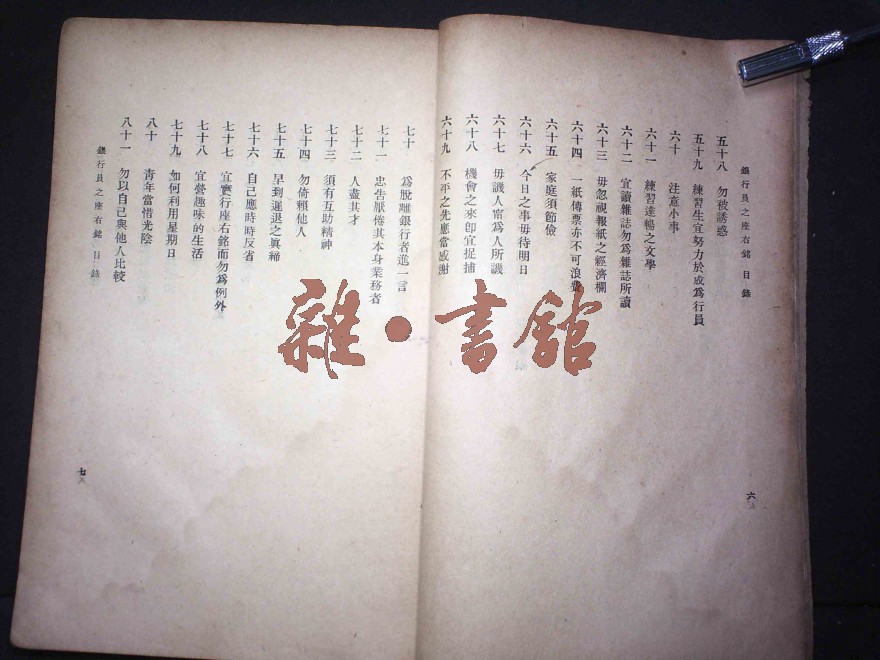 銀行員之座右銘 目錄
五十八 勿被誘惑
五十九 練習生宜努力於成爲行員
六十 注意小事
六十一 練習達暢之文學
六十二 宜讀雜誌勿爲雜誌所讀
六十三 毋忽視報紙之經濟欄
六十四 一紙傳票亦不可浪費
六十五 家庭須節儉
六十六 今日之事毋待明日
六十七 毋譏人甯爲人所譏
六十八 機會之來卽宜捉捕
六十九 不平之先應當感謝
六
七十 爲脫離銀行者進一言
七十一 忠告厭倦其本身業務者
七十二 人盡其才
七十三 須有互助精神
七十四 勿倚賴他人
七十五 早到遲退之眞締
七十六 自己應時時反省
七十七 宜實行座右銘而勿爲例外
七十八 宜營趣味的生活
七十九 如何利用星期日
八十 青年當惜光陰
八十一 勿以自己與他人比較
銀行員之座右銘 目錄
七
雜·書館